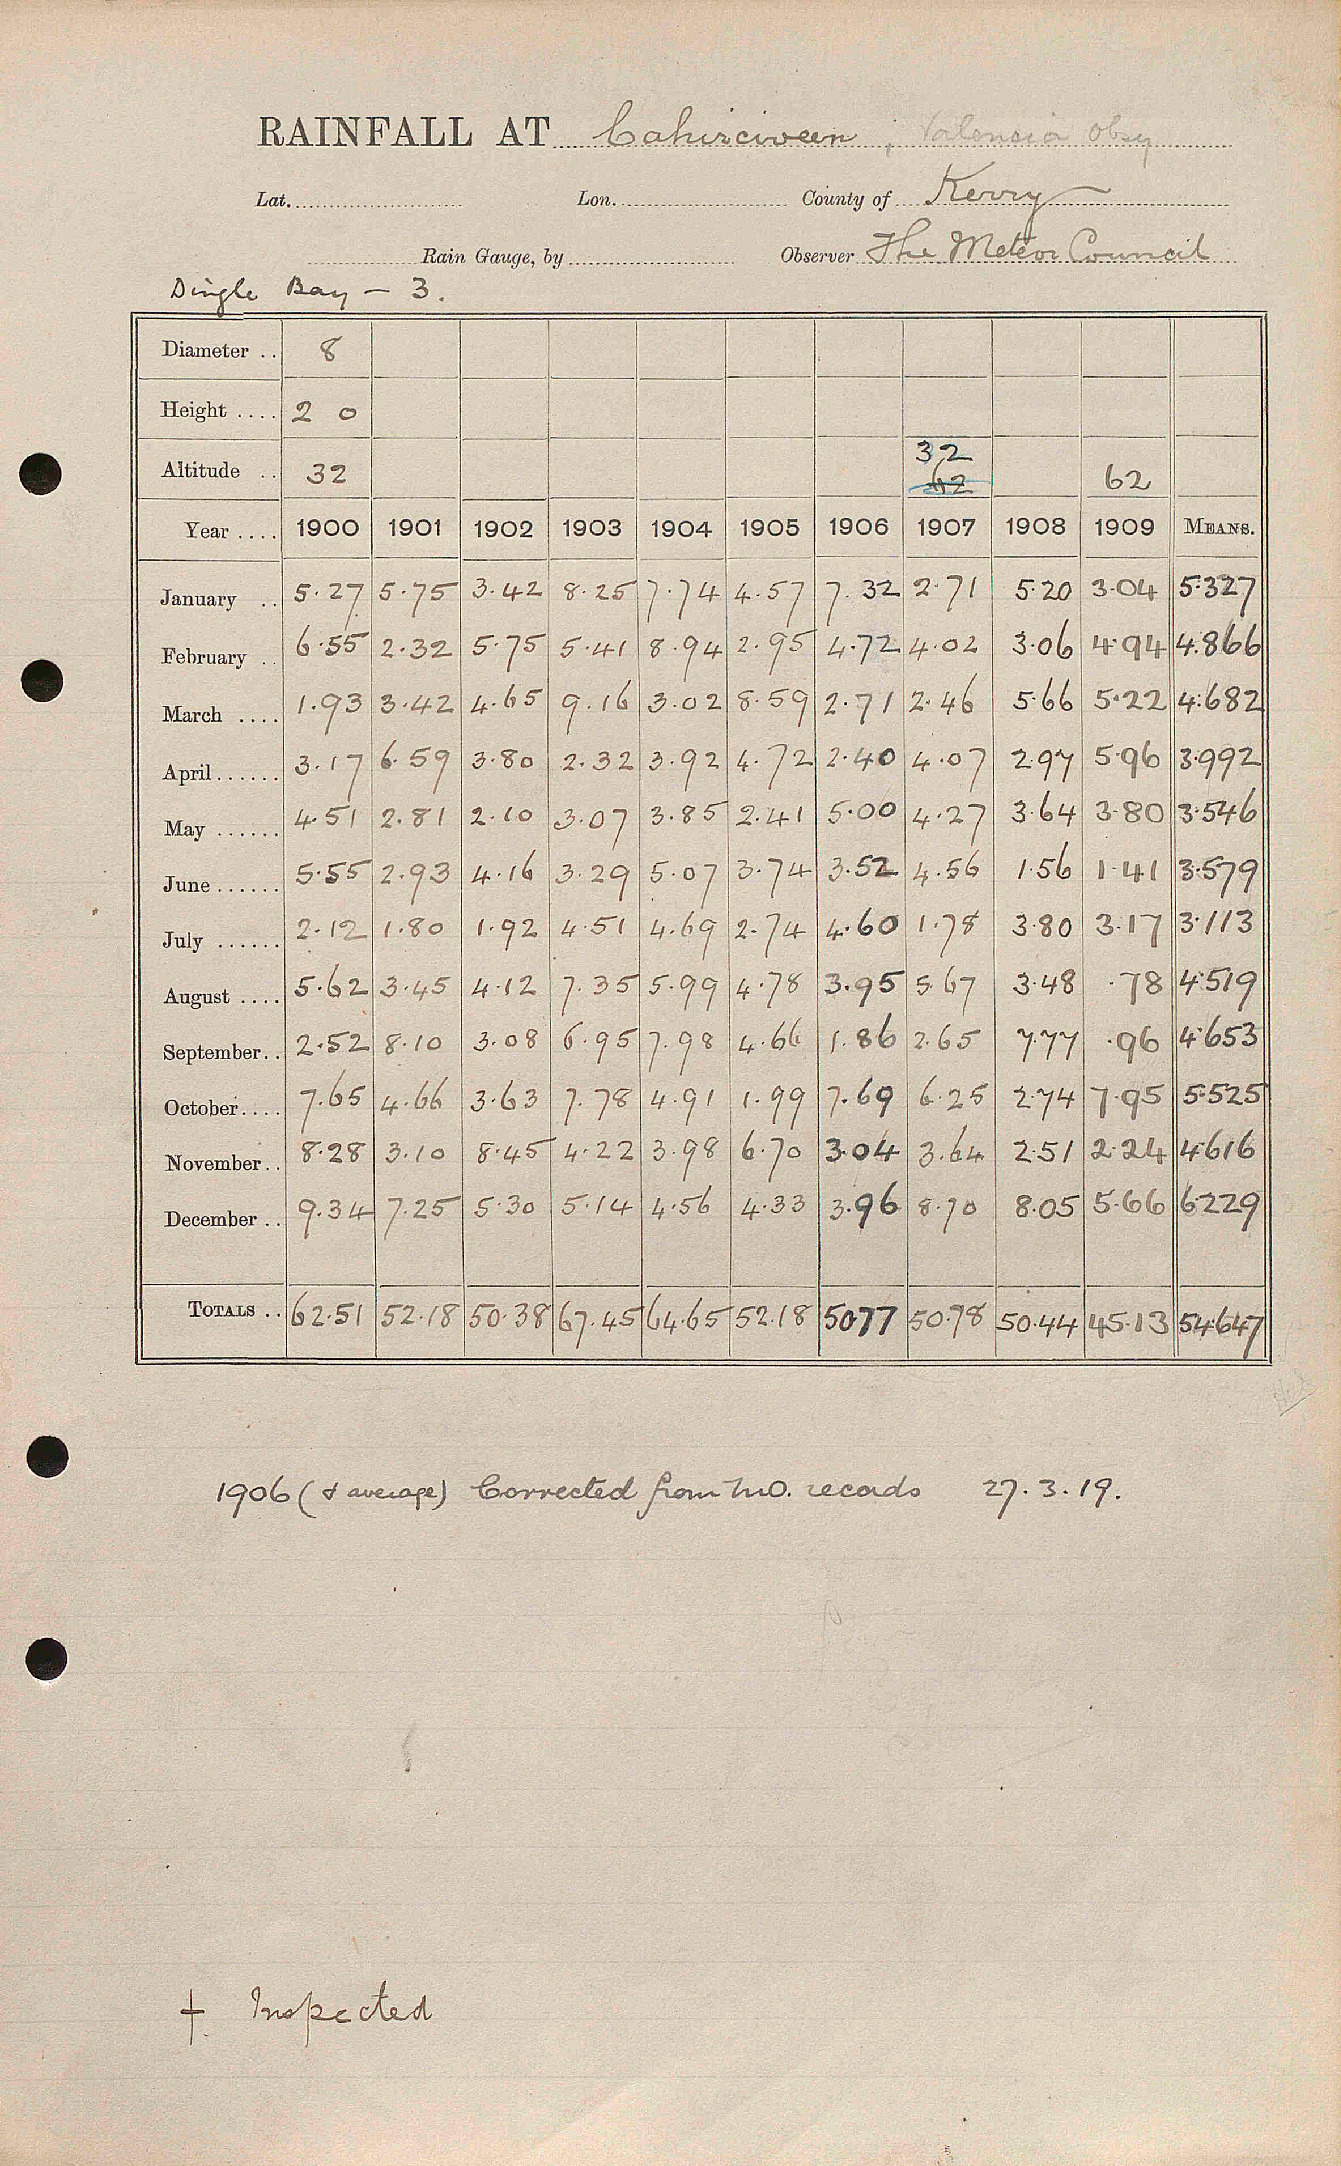 RAINFALL AT Cahirciveen, Valencia Obsy
Lat. Lon. County of Kerry
Rain Gauge, by Observer The Meteor Council
Dingle Bay – 3.
Diameter .. 8
Height .... 2 0
Altitude .. 32 32 62
62
Year .... 1900 1901 1902 1903 1904 1905 1906 1907 1908 1909 MEANS.
January .. 5.27 5.75 3.42 8.25 7.74 4.57 7.32 2.71 5.20 3.04 5.327
February .. 6.55 2.32 5.75 5.41 8.94 2.95 4.72 4.02 3.06 4.94 4.866
March .... 1.93 3.42 4.65 9.16 3.02 8.59 2.71 2.46 5.66 5.22 4.682
April ...... 3.17 6.59 3.80 2.32 3.92 4.72 2.40 4.07 2.97 5.96 3.992
May ...... 4.51 2.81 2.10 3.07 3.85 2.41 5.00 4.27 3.64 3.80 3.546
June ...... 5.55 2.93 4.16 3.29 5.07 3.74 3.52 4.56 1.56 1.41 3.579
July ...... 2.12 1.80 1.92 4.51 4.69 2.74 4.60 1.78 3.80 3.17 3.113
August .... 5.62 3.45 4.12 7.35 5.99 4.78 3.95 5.67 3.48 .78 4.519
September .. 2.52 8.10 3.08 6.95 7.98 4.66 1.86 2.65 7.77 .96 4.653
October .... 7.65 4.66 3.63 7.78 4.91 1.99 7.69 6.25 2.74 7.95 5.525
November .. 8.28 3.10 8.45 4.22 3.98 6.70 3.04 3.64 2.51 2.24 4.616
December .. 9.34 7.25 5.30 5.14 4.56 4.33 3.96 8.70 8.05 5.66 6.229
TOTALS .. 62.51 52.18 50.38 67.45 64.65 52.18 50.77 50.78 50.44 45.13 54.647
1906 (& average) Corrected from M.O. records 27.3.19.
† Inspected